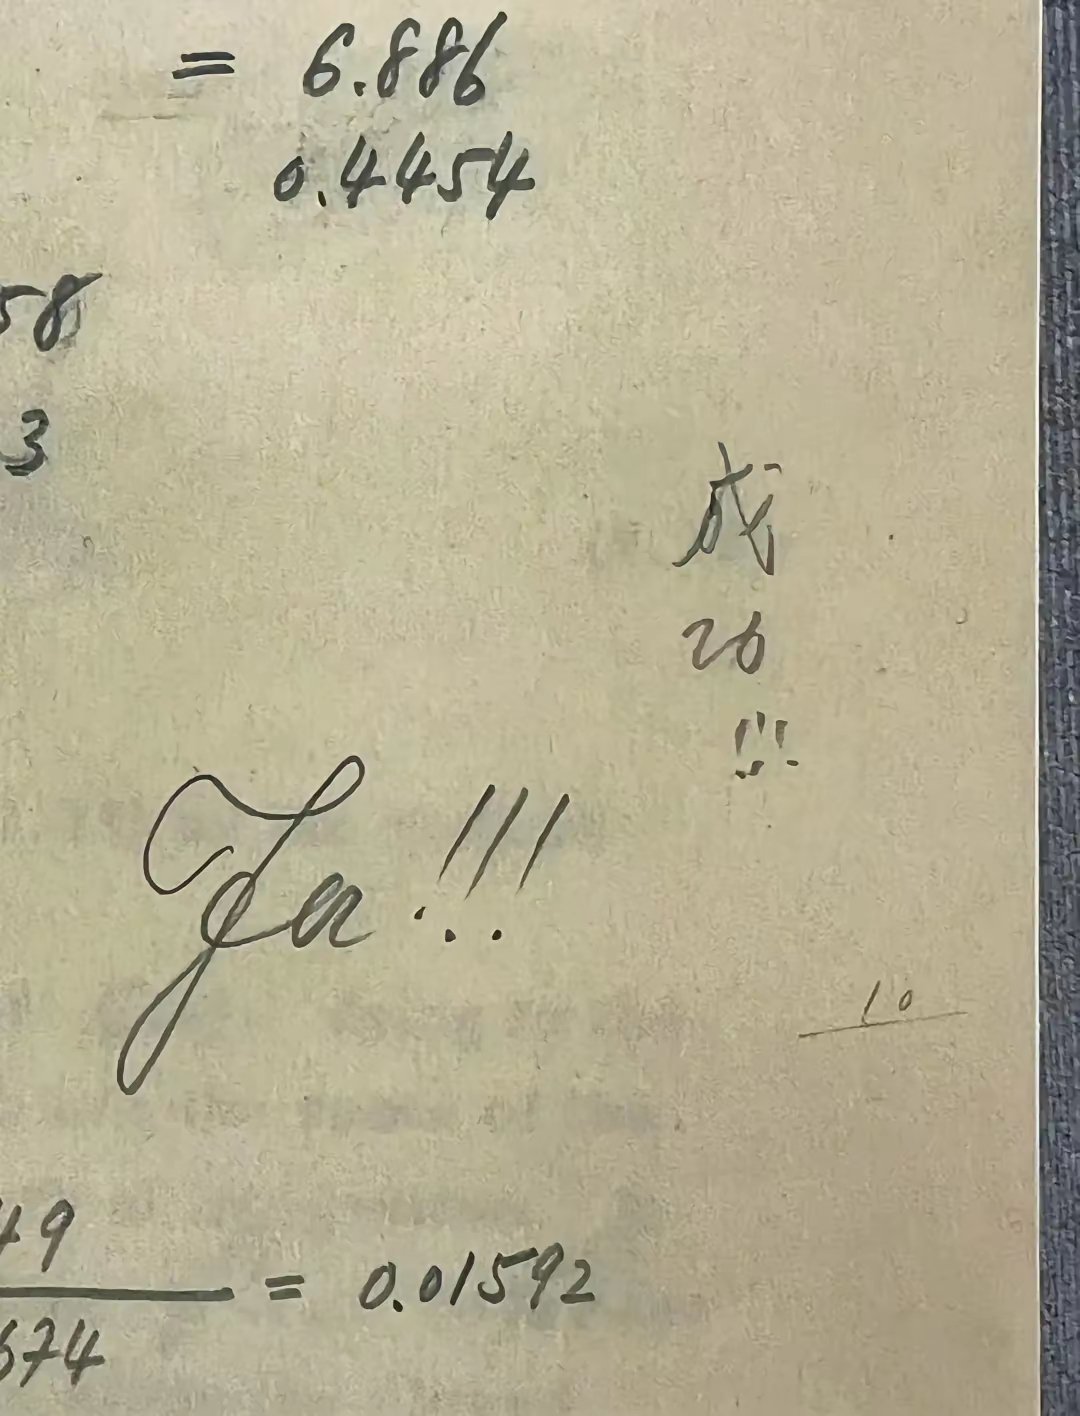 = 6.886
0.4454
58
3
成
26
!!!
Ja!!!
10
49
674
= 0.01592